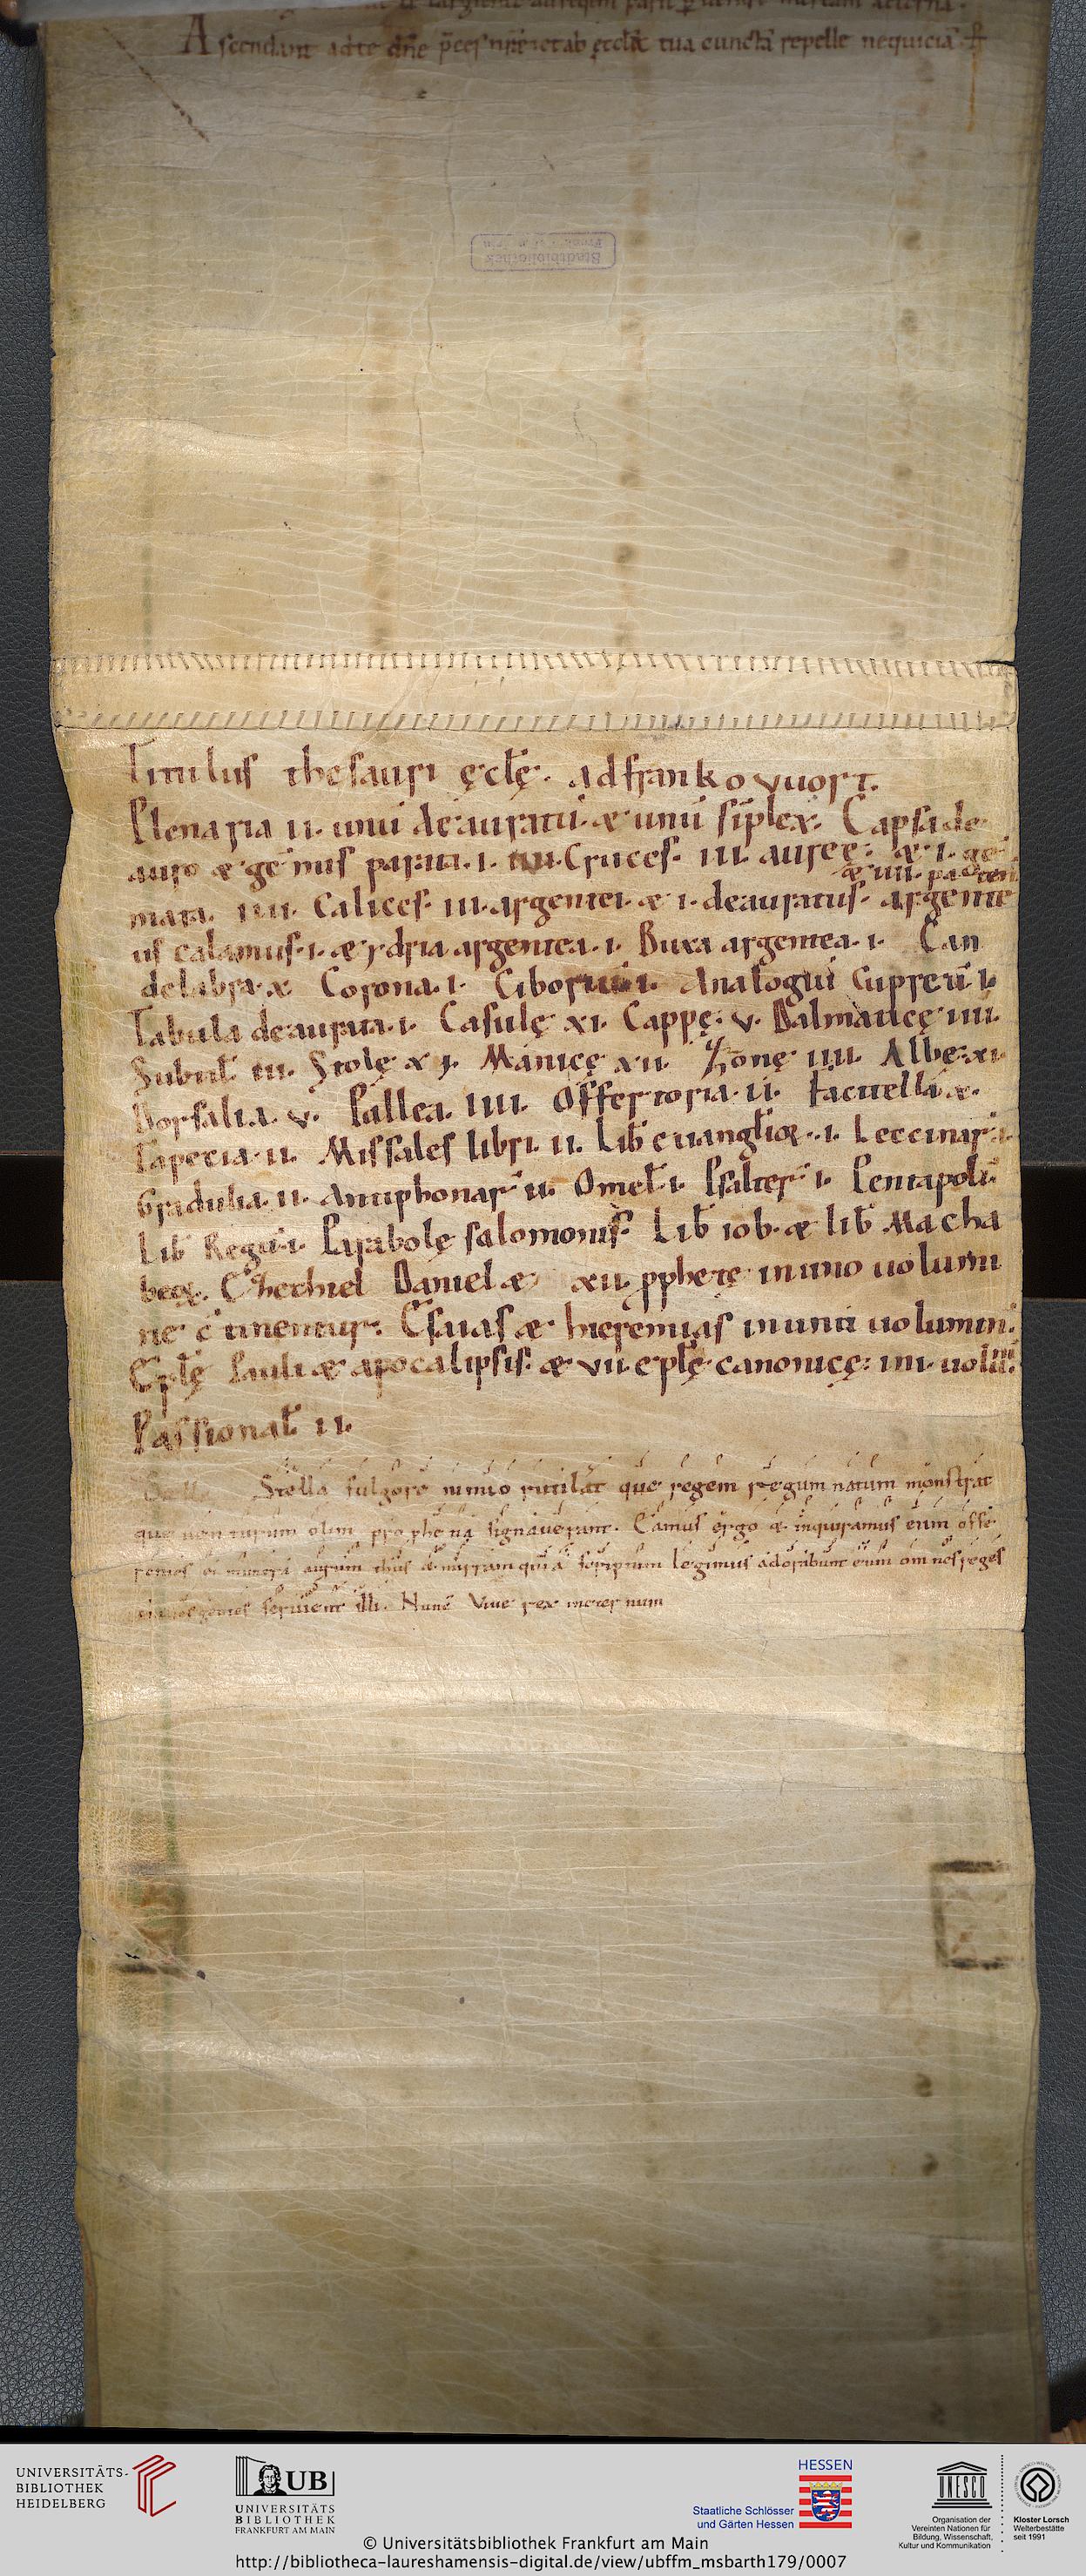 Ascendant ad te dn̄e p̄ces nr̄e et ab ęccl̄ia tua cunctā repelle nequiciā
Stadtbibliothek
Titulus thesauri ęclę̄. Ad frankovuort.
Plenaria ii. unū deauratū. & unū sīplex. Capsa de
auro & gēmis parata. i. Cruces. iii. auree. & i. gē
& iiii. pa
mata. iiii. Calices. iii. argentei. & i. deauratus. argente
us calamus. i. & ydria argentea. i. Buxa argentea. i. Can
delabra. x. Corona. i. Ciboriū. i. Analogiū cupreū. i.
Tabula deaurata. i. Casulę xi. Cappę. v. Dalmaticę iiii.
Subtil̄ iii. Stolę x i. Manicę xii. Zonę iiii. Albę. xi.
Dorsalia. v. Pallea. iiii. Offertoria. ii. facitella. x.
Tapecia. ii. Missales libri. ii. Lib̄ euangl̄ioꝝ. i. Leccinar̄ i.
Gradualia. ii. Antiphonar̄ ii. Omel̄. i. Psalter̄ i. Pentapoli
Lib̄ Regū. i. Parabolę salomonis. Lib̄ iob. & lib̄ Macha
beoꝝ. Ezhechiel Daniel & xii. pphetę in uno uolumi
ne c̄tinentur. Esaias & hieremias in uno uolumin.
Epl̄ę Pauli & apocalipsis. & vii epl̄ę canonicę. iii. uolū.
Passional̄ ii.
Stella fulgore nimio rutilat que regem regum natum monstrat
que uenturum olim prophetia signauerant. Eamus ergo & inquiramus eum offe
rentes ei munera aurum thus & mirram quia scriptum legimus adorabunt eum omnes reges
omnes gentes seruient illi. Nunc Viue rex in eternum
UNIVERSITÄTS-
BIBLIOTHEK
HEIDELBERG
UB
UNIVERSITÄTS
BIBLIOTHEK
FRANKFURT AM MAIN
HESSEN
Staatliche Schlösser
und Gärten Hessen
UNESCO
Organisation der
Vereinten Nationen für
Bildung, Wissenschaft,
Kultur und Kommunikation
Kloster Lorsch
Welterbestätte
seit 1991
© Universitätsbibliothek Frankfurt am Main
http://bibliotheca-laureshamensis-digital.de/view/ubffm_msbarth179/0007